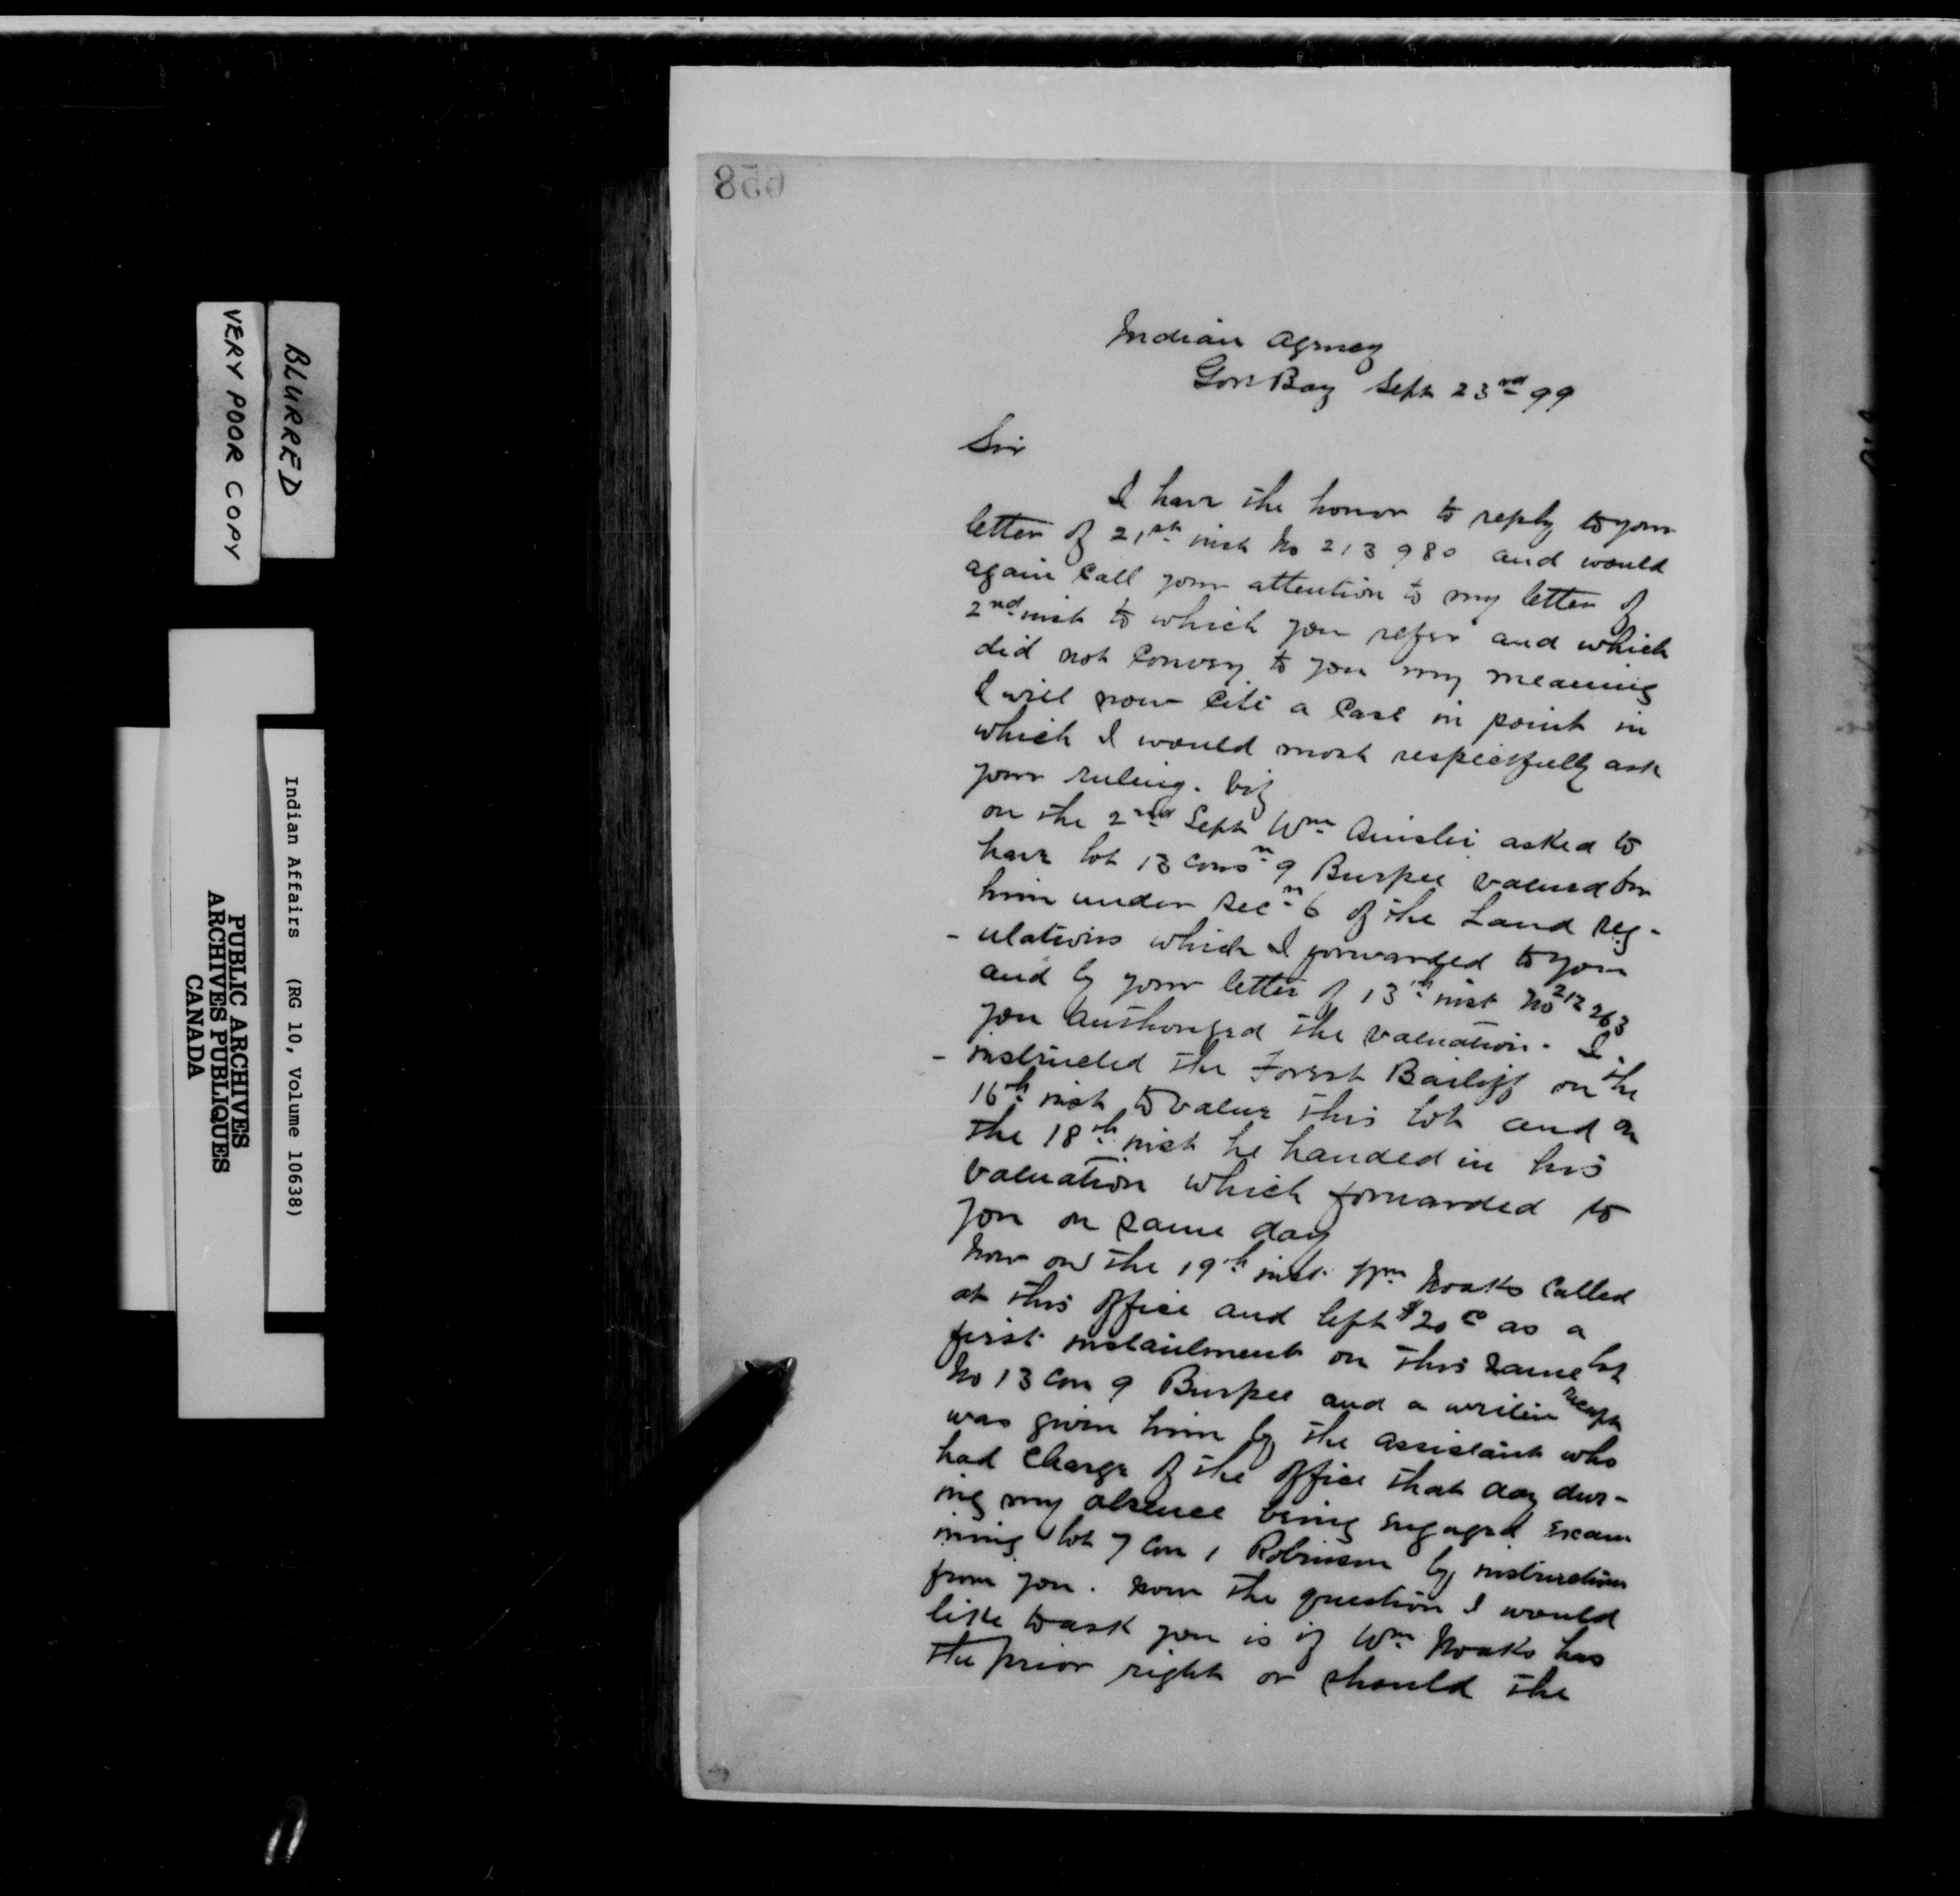 658
Indian Agency
Gore Bay Sept 23rd 99
Sir
I have the honor to reply to your
letter of 21st inst No 213980 and would
again call your attention to my letter of
2nd inst to which you refer and which
did not convey to you my meaning
I will now cite a case in point in
which I would most respectfully ask
your ruling. Viz
on the 2nd Sept Wm Ainslie asked to
have lot 13 consn 9 Burpee valued for
him under Secn 6 of the Land reg-
-ulations which I forwarded to you
and by your letter of 13th inst No 212263
you authorized the valuation. I
-instructed the Forest Bailiff on the
16th inst to value this lot and on
the 18th inst he handed in his
valuation which forwarded to
you on same day
Now on the 19th inst Wm Noaks called
at this office and left $20.00 as a
first instaulment on this same lot
No 13 Con 9 Burpee and a writen receipt
was given him by the assistant who
had charge of the office that day dur-
ing my absence being engaged exam
ining lot 7 Con 1 Robinson by instructions
from you. Now the question I would
like to ask you is if Wm Noaks has
the prior right or should the
BLURRED
VERY POOR COPY
Indian Affairs (RG 10, Volume 10638)
PUBLIC ARCHIVES
ARCHIVES PUBLIQUES
CANADA